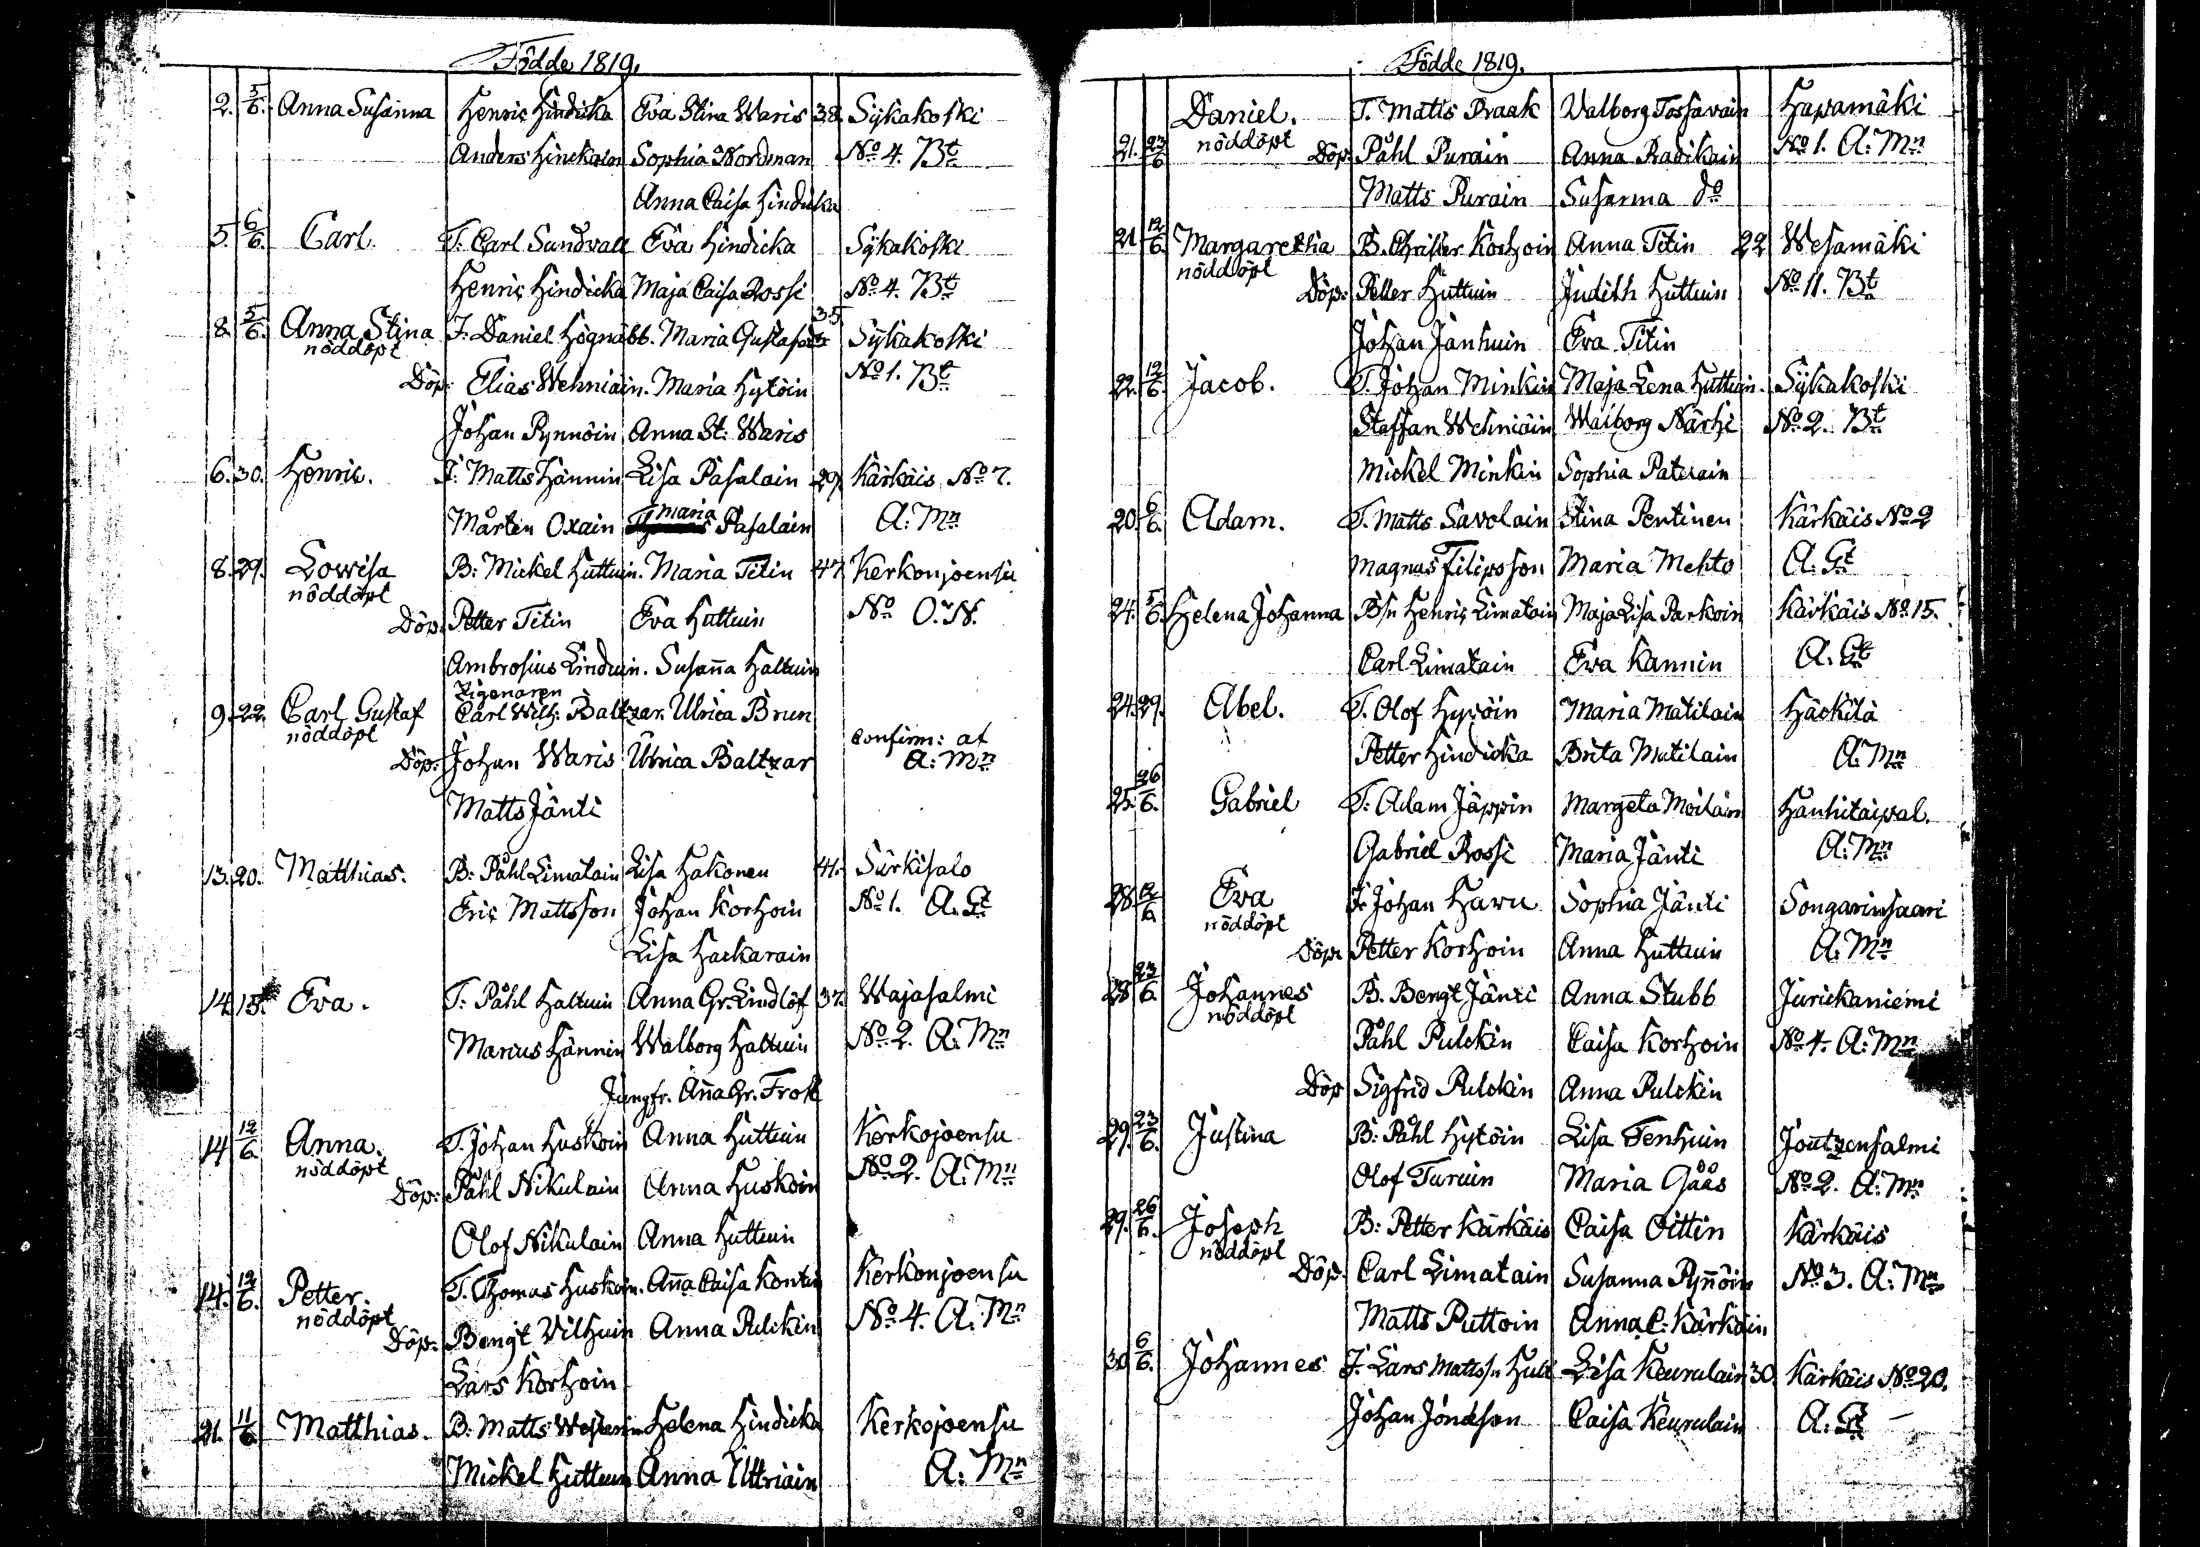 Födde 1819.
2. 5/6. Anna Susanna Henric Hindicka Eva Stina Waris 38. Sykakoski
Anders Hinckain Sophia Nordman No 4. Bt
Anna Caisa Hindicka
5. 6/6. Carl. T. Carl Sundvall Eva Hindicka Sykakoski
Henric Hindicka Maja Caisa Rossi No 4. Bt
8. 5/6. Anna Stina J. Daniel Högnäbb. Maria Gustafsdr 35 Sykakoski
nöddöpt
Döp: Elias Wehniäin. Maria Hytöin No 1. Bt
Johan Pynnöin Anna St: Waris
6. 30. Henric. J. Matts Hännin Lisa Pasalain 29. Kärkäis No 7.
Mårten Oxain Maria Pasalain A: Mn
8. 29. Lowisa B: Mickel Huttuin. Maria Titin 47. Kerkonjoensu
nöddöpt
Döp. Petter Titin Eva Huttuin No O. N.
Ambrosius Linduin. Susana Haltuin
Zigenaren
9. 22. Carl Gustaf Carl Wilh: Baltzar. Ulrica Brun
nöddöpt confirm: at
Döp: Johan Waris Ulrica Baltzar A: Mn
Matts Jänti
13. 20. Matthias. B: Påhl Limatain Lisa Hakonen 41. Särkisalo
Eric Mattsson Johan Korhoin No 1. A. Gt
Lisa Hackarain
14. 15. Eva. T: Påhl Haltuin Anna Gr. Lindlöf 37. Wajasalmi
Marcus Hännin Walborg Haltuin No 2. A: Mn
Jungfr. Ana Gr. Frost
14 12/6. Anna. T. Johan Huskoin Anna Huttuin Kerkojoensu
nöddöpt
Döp: Påhl Nikulain Anna Huskoin No 2. A: Mn
Olof Nikulain Anna Huttuin
14. 12/6. Petter. T. Thomas Huskoin. Ana Caisa Kontin Kerkonjoensu
nöddöpt
Döp: Bengt Vilhuin Anna Pulckin No 4. A: Mn
Lars Korhoin
21. 11/6 Matthias. B. Matts Westerin Helena Hindicka Kerkojoensu
Mickel Huttuin Anna Uttriain A: Mn
Födde 1819.
Daniel. T. Matts Praak Valborg Tossavain Hapamäki
21. 23/6 nöddöpt Döp: Påhl Purain Anna Radikain No 1. A: Mn
Matts Purain Susanna do
21 12/6. Margaretha B. Christer Korhoin Anna Titin 22 Wesamäki
nöddöpt
Döp: Petter Huttuin Judith Huttuin No 11. Bt
Johan Janhuin Eva Titin
22. 12/6. Jacob. T. Johan Minkin Maja Lena Huttuin. Sykakoski
Staffan Wehniäin Walborg Närhi No 2. Bt
Mickel Minkin Sophia Paterain
20. 6/6. Adam. T. Matts Savolain Stina Pentinen Kärkäis No 2
Magnus Filipsson Maria Mehto A. Gt
24. 5/6. Helena Johanna Bsn Henric Limatain Maja Lisa Parkoin Kärkäis No 15.
Carl Limatain Eva Kannin A. Gt
24. 29. Abel. T. Olof Hyvöin Maria Matilain Häckilä
Petter Hindicka Brita Matilain A: Mn
25. 26/6. Gabriel T: Adam Jäppin Margeta Moilain Hanhitaipal.
Gabriel Rossi Maria Jänti A: Mn
28 12/6 Eva J: Johan Haru Sophia Jänti Songarinsaari
nöddöpt
Döp. Petter Korhoin Anna Huttuin A: Mn
28 23/6. Johannes B. Bengt Jänti Anna Stubb Jurickaniemi
nöddöpt
Påhl Pulckin Caisa Korhoin No 4. A: Mn
Döp Sigfrid Pulckin Anna Pulckin
29. 23/6. Justina B: Påhl Hytöin Lisa Tenhuin Joutzensalmi
Olof Turuin Maria Gåås No 2. A: Mn
29. 26/6. Joseph B: Petter Kärkäis Caisa Oittin Kärkäis
nöddöpt
Döp. Carl Limatain Susanna Pynöin No 3. A: Mn
Matts Puttoin Anna C: Kärkäin
30 6/6. Johannes J. Lars Mattsn Hult Lisa Keurulain 30. Kärkäis No 20.
Johan Jönsson Caisa Keurulain A. Gt